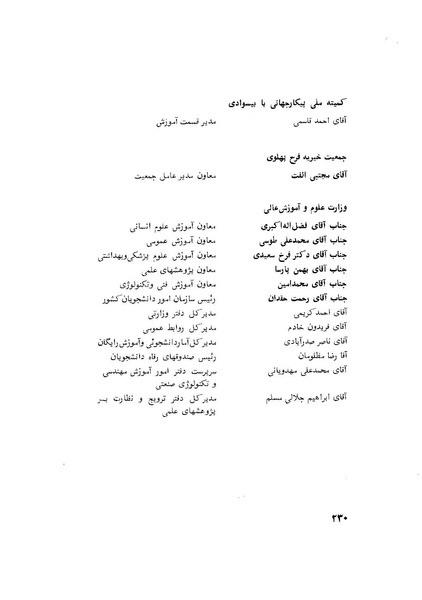 کمیته ملی پیکارجهانی با بیسوادی
آقای احمد قاسمی مدیر قسمت آموزش
جمعیت خیریه فرح پهلوی
آقای مجتبی الفت معاون مدیر عامل جمعیت
وزارت علوم و آموزش‌عالی
جناب آقای فضل‌اله‌اکبری معاون آموزش علوم انسانی
جناب آقای محمدعلی طوسی معاون آموزش عمومی
جناب آقای دکتر فرخ سعیدی معاون آموزش علوم پزشکی‌وبهداشتی
جناب آقای بهمن پارسا معاون پژوهشهای علمی
جناب آقای محمدامین معاون آموزش فنی وتکنولوژی
جناب آقای رحمت حقدان رئیس سازمان امور دانشجویان‌کشور
آقای احمدکریمی مدیرکل دفتر وزارتی
آقای فریدون خادم مدیرکل روابط عمومی
آقای ناصر صدرآبادی مدیرکل‌آماردانشجوئی‌وآموزش‌رایگان
آقا رضا مظلومان رئیس صندوقهای رفاه دانشجویان
آقای محمدعلی مهدویانی سرپرست دفتر امور آموزش مهندسی
و تکنولوژی صنعتی
آقای ابراهیم جلالی مسلم مدیرکل دفتر ترویج و نظارت بر
پژوهشهای علمی
۲۳۰